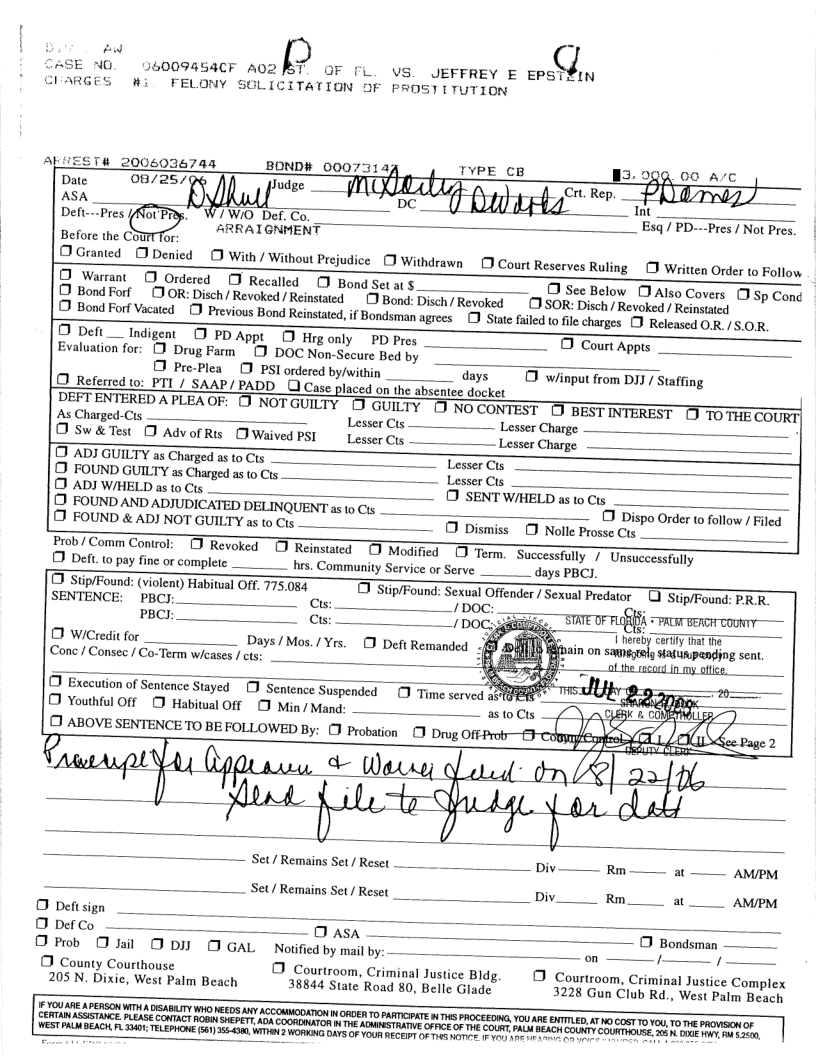 DIV : AW
CASE NO. 06009454CF A02 ST. OF FL. VS. JEFFREY E EPSTEIN
CHARGES #1 FELONY SOLICITATION OF PROSTITUTION
ARREST# 2006036744 BOND# 00073147 TYPE CB 3,000.00 A/C
Date 08/25/06 Judge Crt. Rep.
ASA D. Shull DC Int
Deft---Pres / Not Pres. W / W/O Def. Co. Esq / PD---Pres / Not Pres.
ARRAIGNMENT
Before the Court for:
☐ Granted ☐ Denied ☐ With / Without Prejudice ☐ Withdrawn ☐ Court Reserves Ruling ☐ Written Order to Follow
☐ Warrant ☐ Ordered ☐ Recalled ☐ Bond Set at $ ☐ See Below ☐ Also Covers ☐ Sp Cond
☐ Bond Forf ☐ OR: Disch / Revoked / Reinstated ☐ Bond: Disch / Revoked ☐ SOR: Disch / Revoked / Reinstated
☐ Bond Forf Vacated ☐ Previous Bond Reinstated, if Bondsman agrees ☐ State failed to file charges ☐ Released O.R. / S.O.R.
☐ Deft __ Indigent ☐ PD Appt ☐ Hrg only PD Pres ☐ Court Appts
Evaluation for: ☐ Drug Farm ☐ DOC Non-Secure Bed by
☐ Pre-Plea ☐ PSI ordered by/within days ☐ w/input from DJJ / Staffing
☐ Referred to: PTI / SAAP / PADD ☐ Case placed on the absentee docket
DEFT ENTERED A PLEA OF: ☐ NOT GUILTY ☐ GUILTY ☐ NO CONTEST ☐ BEST INTEREST ☐ TO THE COURT
As Charged-Cts Lesser Cts Lesser Charge
☐ Sw & Test ☐ Adv of Rts ☐ Waived PSI Lesser Cts Lesser Charge
☐ ADJ GUILTY as Charged as to Cts Lesser Cts
☐ FOUND GUILTY as Charged as to Cts Lesser Cts
☐ ADJ W/HELD as to Cts ☐ SENT W/HELD as to Cts
☐ FOUND AND ADJUDICATED DELINQUENT as to Cts ☐ Dispo Order to follow / Filed
☐ FOUND & ADJ NOT GUILTY as to Cts ☐ Dismiss ☐ Nolle Prosse Cts
Prob / Comm Control: ☐ Revoked ☐ Reinstated ☐ Modified ☐ Term. Successfully / Unsuccessfully
☐ Deft. to pay fine or complete hrs. Community Service or Serve days PBCJ.
☐ Stip/Found: (violent) Habitual Off. 775.084 ☐ Stip/Found: Sexual Offender / Sexual Predator ☐ Stip/Found: P.R.R.
SENTENCE: PBCJ: Cts: / DOC: Cts:
STATE OF FLORIDA • PALM BEACH COUNTY
PBCJ: Cts: / DOC: Cts:
I hereby certify that the
☐ W/Credit for Days / Mos. / Yrs. ☐ Deft Remanded main on same rel. status pending sent.
Conc / Consec / Co-Term w/cases / cts:
of the record in my office.
☐ Execution of Sentence Stayed ☐ Sentence Suspended ☐ Time served as to Cts
THIS DAY OF 20
☐ Youthful Off ☐ Habitual Off ☐ Min / Mand: as to Cts
CLERK & COMPTROLLER
☐ ABOVE SENTENCE TO BE FOLLOWED By: ☐ Probation ☐ Drug Off Prob ☐ Comm Control ☐ I ☐ II See Page 2
DEPUTY CLERK
for Appearance + Waiver filed on 8/22/06
Send file to Judge for date
Set / Remains Set / Reset Div Rm at AM/PM
Set / Remains Set / Reset Div Rm at AM/PM
☐ Deft sign
☐ Def Co ☐ ASA ☐ Bondsman
☐ Prob ☐ Jail ☐ DJJ ☐ GAL Notified by mail by: on / /
☐ County Courthouse ☐ Courtroom, Criminal Justice Bldg. ☐ Courtroom, Criminal Justice Complex
205 N. Dixie, West Palm Beach 38844 State Road 80, Belle Glade 3228 Gun Club Rd., West Palm Beach
IF YOU ARE A PERSON WITH A DISABILITY WHO NEEDS ANY ACCOMMODATION IN ORDER TO PARTICIPATE IN THIS PROCEEDING, YOU ARE ENTITLED, AT NO COST TO YOU, TO THE PROVISION OF
CERTAIN ASSISTANCE. PLEASE CONTACT ROBIN SHEPETT, ADA COORDINATOR IN THE ADMINISTRATIVE OFFICE OF THE COURT, PALM BEACH COUNTY COURTHOUSE, 205 N. DIXIE HWY, RM 5.2500,
WEST PALM BEACH, FL 33401; TELEPHONE (561) 355-4380, WITHIN 2 WORKING DAYS OF YOUR RECEIPT OF THIS NOTICE. IF YOU ARE HEARING OR VOICE